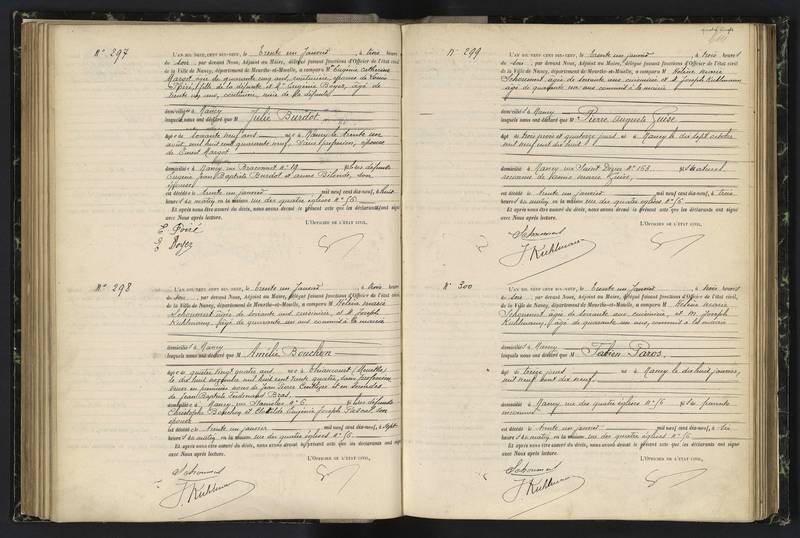 N° 297
L'AN MIL NEUF CENT DIX-NEUF, le trente un Janvier, à trois heures
du soir, par devant Nous, Adjoint au Maire, délégué faisant fonctions d'Officier de l'état civil
de la Ville de Nancy, département de Meurthe-et-Moselle, a comparu M Eugénie Catherine
Margot âgée de quarante cinq ans, couturière, épouse de Louis
Poiré, fille de la défunte et Eugénie Boyer, âgée de
trente ans, couturière, de la défunte
domicilié à Nancy
lesquels nous ont déclaré que M Julie Burdot
âgée de soixante neuf ans née à Nancy le trente un
août mil huit cent quarante neuf, sans profession, épouse
de Ernest Margot
domiciliée à Nancy, rue Braconnot n° 19
Jean Baptiste Burdot et Anne son
épouse
est décédée le trente un janvier mil neuf cent dix-neuf, à huit
heures du matin, en la maison rue des quatre églises n° 56
Et après nous être assuré du décès, nous avons dressé le présent acte que les déclarants ont signé
avec Nous après lecture.
L'OFFICIER DE L'ÉTAT CIVIL,
E. Poiré
N° 298
L'AN MIL NEUF CENT DIX-NEUF, le trente un Janvier, à trois heures
du soir, par devant Nous, Adjoint au Maire, délégué faisant fonctions d'Officier de l'état civil
de la Ville de Nancy, département de Meurthe-et-Moselle, a comparu M Hélène Marie
Schoumert âgée de soixante ans cuisinière, et M. Joseph
Kuhlmann, âgé de quarante un ans commis à la mairie
domicilié à Nancy
lesquels nous ont déclaré que M Amélie Bouchon
âgée de quatre vingt quatre ans née à Thiaucourt (Moselle)
le dix huit mil huit cent trente quatre, sans profession
veuve en premières noces de Jean Pierre et en secondes
de Jean Baptiste Ferdinand Bras
domiciliée à Nancy, rue Stanislas n° 6
Christophe Bouchon et Clotilde Eugénie Joseph son
épouse
est décédée le trente un janvier mil neuf cent dix-neuf, à sept
heures du matin, en la maison rue des quatre églises n° 56
Et après nous être assuré du décès, nous avons dressé le présent acte que les déclarants ont signé
avec Nous après lecture.
L'OFFICIER DE L'ÉTAT CIVIL,
Schoumert
J. Kuhlmann
N° 299
L'AN MIL NEUF CENT DIX-NEUF, le trente un janvier, à trois heures
du soir, par devant Nous, Adjoint au Maire, délégué faisant fonctions d'Officier de l'état civil,
de la Ville de Nancy, département de Meurthe-et-Moselle, a comparu M Hélène Marie
Schoumert âgée de soixante ans, cuisinière et M. Joseph Kuhlmann
âgé de quarante un ans commis à la mairie
domicilié à Nancy
lesquels nous ont déclaré que M Pierre Auguste Guise
âgé de trois mois et quatorze jours né à Nancy le dix sept octobre
mil neuf cent dix huit
domicilié à Nancy rue Saint Dizier n° 153
est décédé le trente un janvier mil neuf cent dix-neuf, à trois
heures du matin, en la maison rue des quatre églises n° 56
Et après nous être assuré du décès, nous avons dressé le présent acte que les déclarants ont signé
avec Nous après lecture.
L'OFFICIER DE L'ÉTAT CIVIL,
Schoumert
J. Kuhlmann
N° 300
L'AN MIL NEUF CENT DIX-NEUF, le trente un Janvier, à trois heures
du soir, par devant Nous, Adjoint au Maire, délégué faisant fonctions d'Officier de l'état civil,
de la Ville de Nancy, département de Meurthe-et-Moselle, a comparu M Hélène Marie
Schoumert âgée de soixante ans, cuisinière, et M. Joseph
Kuhlmann, âgé de quarante un ans, commis à la mairie
domicilié à Nancy
lesquels nous ont déclaré que M Fabien Paros,
âgé de treize jours né à Nancy le dix huit janvier,
mil neuf cent dix neuf.
domicilié à Nancy, rue des quatre églises n° 56
est décédé le trente un janvier mil neuf cent dix-neuf, à six
heures du matin, en la maison rue des quatre églises n° 56
Et après nous être assuré du décès, nous avons dressé le présent acte que les déclarants ont signé
avec Nous après lecture.
L'OFFICIER DE L'ÉTAT CIVIL,
Schoumert
J. Kuhlmann